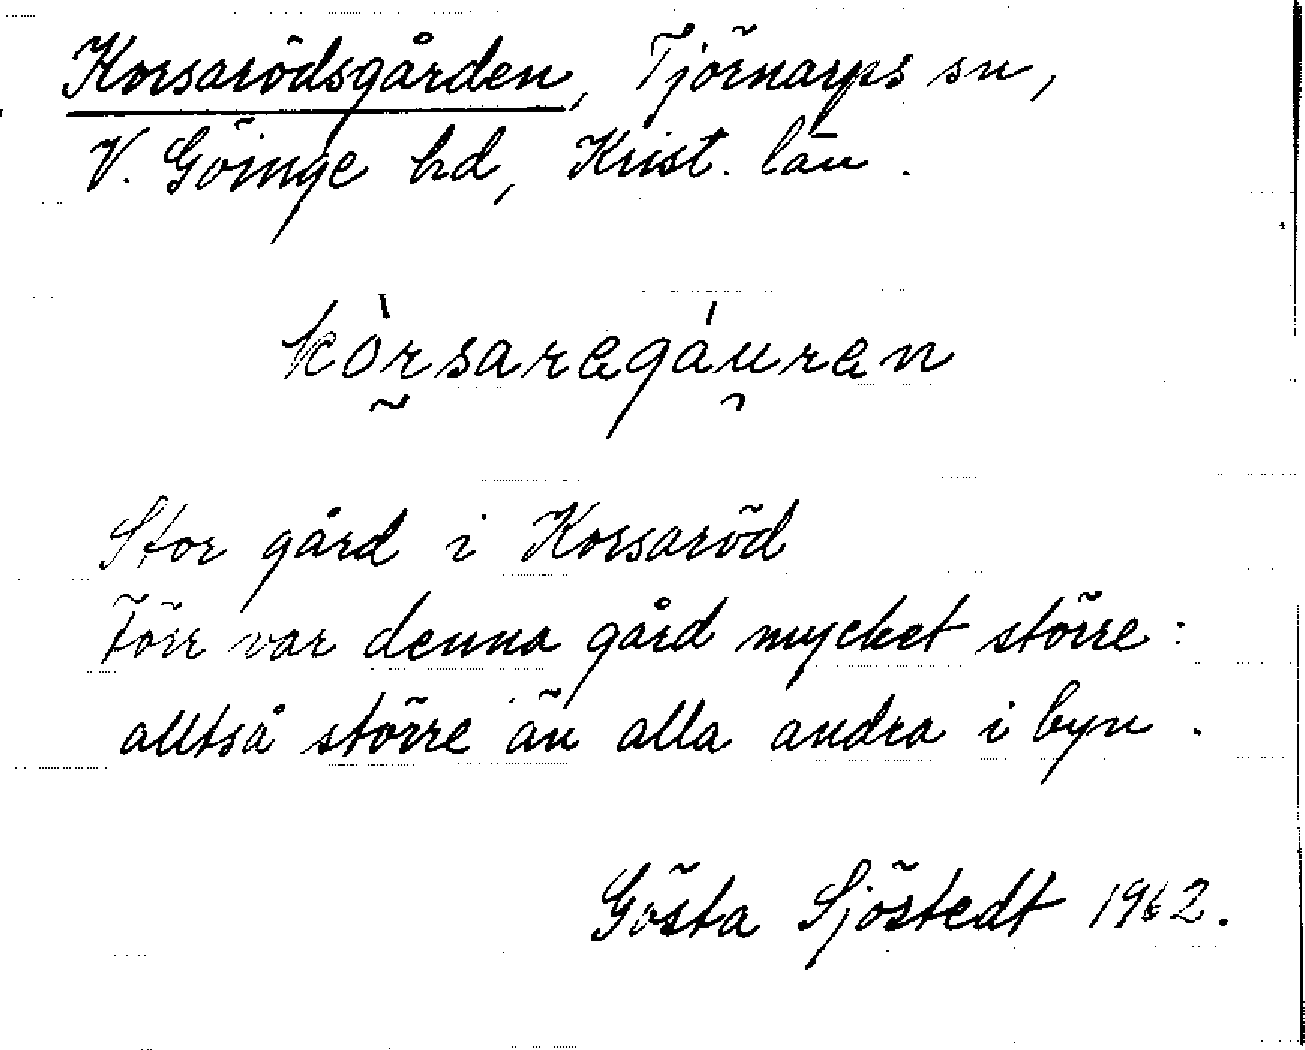 Korsarödsgården, Tjörnarps sn,
V. Göinge hd, Krist. län.
kòrsaregáuren
Stor gård i Korsaröd
Förr var denna gård mycket större:
alltså större än alla andra i byn.
Gösta Sjöstedt 1962.